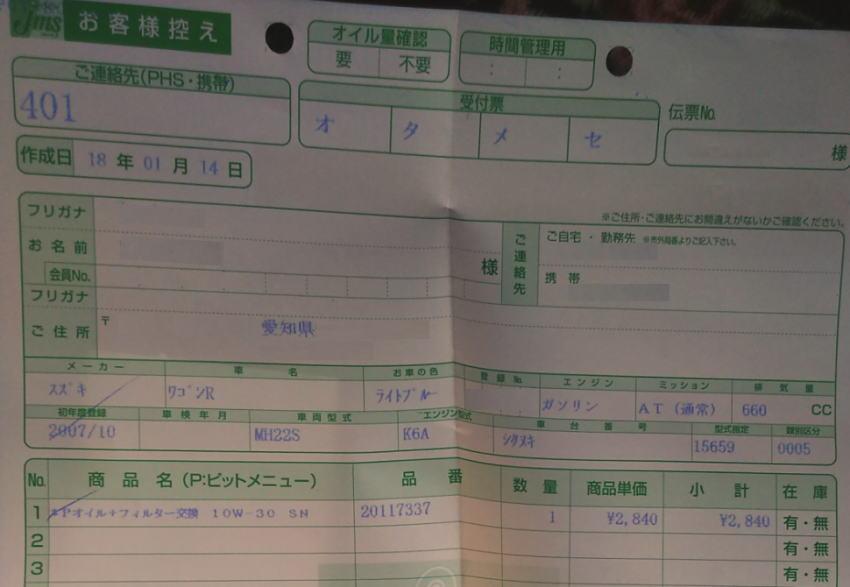 Jms お客様控え
オイル量確認
要 不要
時間管理用
: :
ご連絡先(PHS・携帯)
401
受付票
オ タ メ セ
伝票No.
様
作成日 18 年 01 月 14 日
※ご住所・ご連絡先にお間違えがないかご確認ください。
フリガナ
お名前
様
会員No.
ご連絡先
ご自宅・勤務先 ※市外局番よりご記入下さい。
携帯
フリガナ
ご住所 〒 愛知県
メーカー 車名 お車の色 登録No. エンジン ミッション 排気量
スズキ ワゴンR ライトブルー ガソリン AT(通常) 660 CC
初年度登録 車検年月 車両型式 エンジン型式 車台番号 型式指定 類別区分
2007/10 MH22S K6A 15659 0005
No. 商品名(P:ピットメニュー) 品番 数量 商品単価 小計 在庫
1 *Pオイル+フィルター交換 10W-30 SN 20117337 1 ¥2,840 ¥2,840 有・無
2 有・無
3 有・無